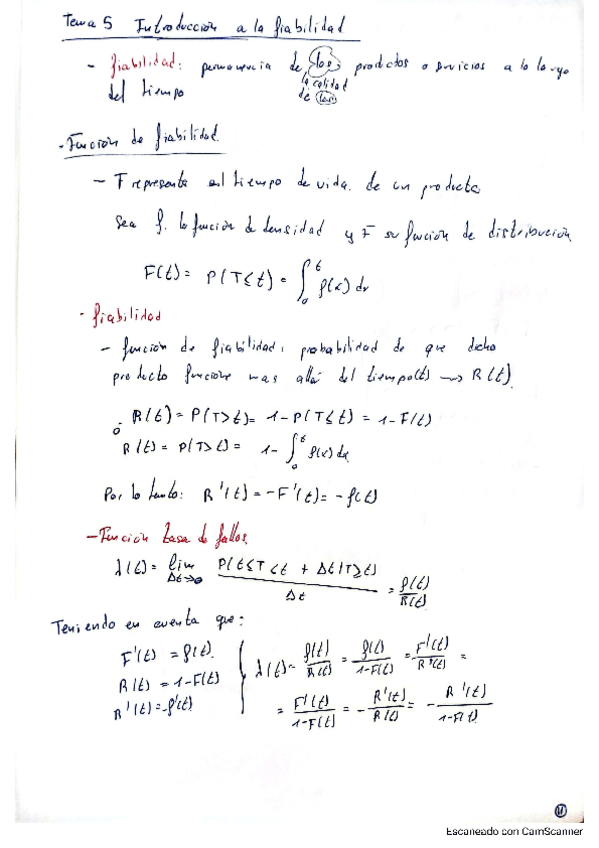 Tema 5 Introducción a la fiabilidad
- fiabilidad: permanencia de los productos o servicios a lo largo
la calidad
del tiempo
de los
- Función de fiabilidad.
- T representa el tiempo de vida de un producto
Sea f. la función de densidad y F su función de distribución
F(t) = P(T≤t) = ∫₀ᵗ f(x) dx
· fiabilidad
- función de fiabilidad: probabilidad de que dicho
producto funcione mas allá del tiempo(t) → R(t).
R(t) = P(T>t) = 1-P(T≤t) = 1-F(t)
o
R(t) = P(T>t) = 1- ∫₀ᵗ f(x) dx
Por lo tanto: R'(t) = -F'(t) = -f(t)
- Función tasa de fallos
λ(t) = lim Δt→0 P(t≤T<t + Δt/T≥t) / Δt = f(t)/R(t)
Teniendo en cuenta que:
F'(t) = f(t).
R(t) = 1-F(t)
R'(t) = -f'(t)
λ(t) = f(t)/R(t) = f(t)/1-F(t) = F'(t)/R(t) =
= F'(t)/1-F(t) = - R'(t)/R(t) = - R'(t)/1-F(t)
Escaneado con CamScanner